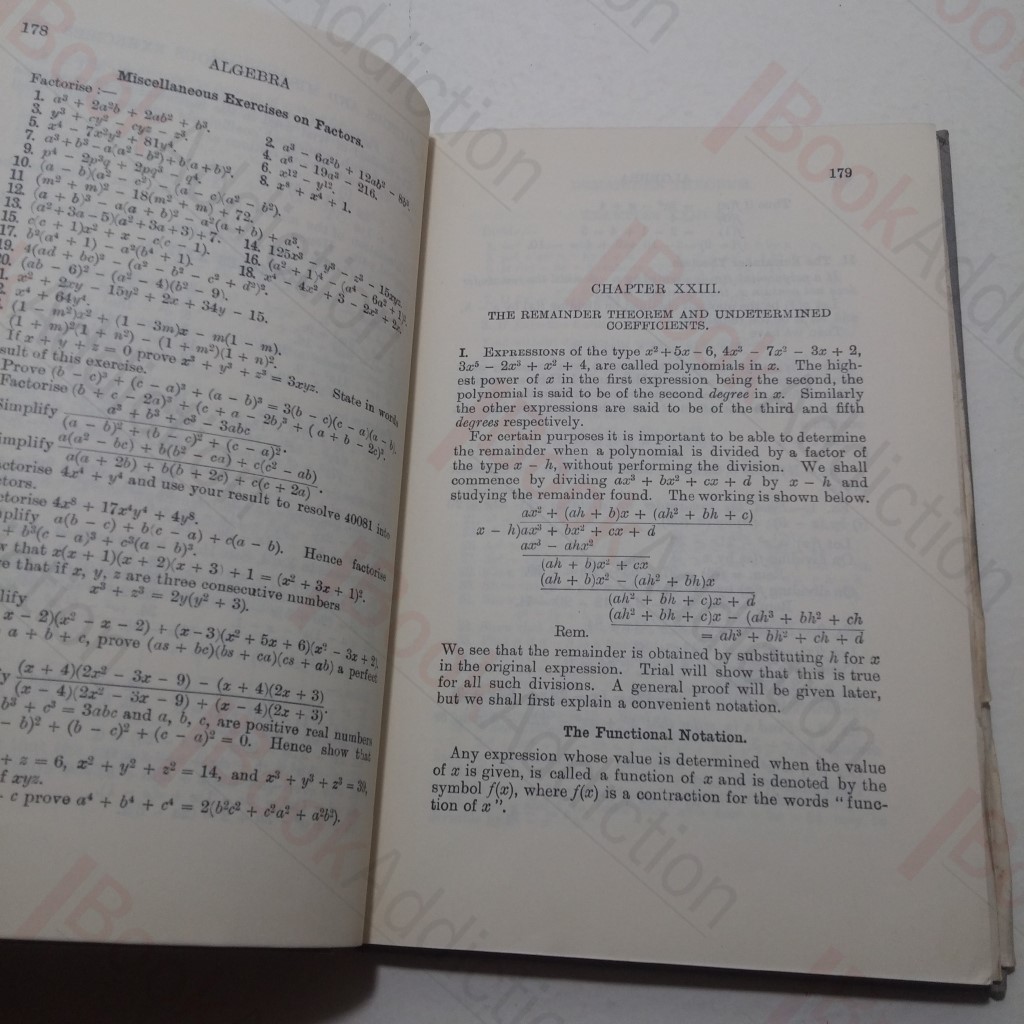 178
ALGEBRA
Miscellaneous Exercises on Factors.
Factorise :—
1. a³ + 2a²b + 2ab² + b³.
2. a³ − 6a²b + 12ab² − 8b³.
3. y³ + cy² − cy² − z³.
4. a⁶ − 19a³ − 216.
5. x⁴ − 7x²y² + 81y⁴.
6. x¹² − y¹².
7. a³+b³−a(a²−b²)+b(a+b)².
8. x⁸ + x⁴ + 1.
9. p⁴ − 2p³q + 2pq³ − q⁴.
10. (a − b)(a² − c²) − (a − c)(a² − b²).
11 (m² + m)² − 18(m² + m) + 72.
12. (a + b)³ − a(a + b)² − a²(a + b) + a³.
13. (a²+3a−5)(a²+3a+3)+7.
14. 125x³ − y³ − z³ − 15xyz.
15. c(c + 1)x² + x − c(c − 1).
16. (a² + 1)⁴ − (a⁴ − 6a² + 1)².
17. b²(a⁴ + 1) − a²(b⁴ + 1).
18. x⁴ − 4x² + 3 − 2x² +
19. 4(ad + bc)² − (a² − b² − c² + d²)².
20. (ab − 6)² − (a² − 4)(b² − 9).
1. x² + 2xy − 15y² + 2x + 34y − 15.
x⁴ + 64y⁴.
(1 − m²)x² + (1 − 3m)x − m(1 − m).
(1 + m)²(1 + n²) − (1 + m²)(1 + n)².
If x + y + z = 0 prove x³ + y³ + z³ = 3xyz. State in words
sult of this exercise.
Prove (b − c)³ + (c − a)³ + (a − b)³ = 3(b − c)(c − a)(a − b).
Factorise (b + c − 2a)³ + (c + a − 2b)³ + (a + b − 2c)³.
Simplify a³ + b³ + c³ − 3abc
(a − b)² + (b − c)² + (c − a)².
implify a(a² − bc) + b(b² − ca) + c(c² − ab)
a(a + 2b) + b(b + 2c) + c(c + 2a).
actorise 4x⁴ + y⁴ and use your result to resolve 40081 into
tors.
ctorise 4x⁸ + 17x⁴y⁴ + 4y⁸.
plify a(b − c) + b(c − a) + c(a − b). Hence factorise
+ b³(c − a)³ + c³(a − b)³.
w that x(x + 1)(x + 2)(x + 3) + 1 = (x² + 3x + 1)².
e that if x, y, z are three consecutive numbers
x³ + z³ = 2y(y² + 3).
lify
x − 2)(x² − x − 2) + (x−3)(x²+5x+6)(x² − 3x + 2).
a + b + c, prove (as + bc)(bs + ca)(cs + ab) a perfect
y (x + 4)(2x² − 3x − 9) − (x + 4)(2x + 3)
(x − 4)(2x² − 3x − 9) + (x − 4)(2x + 3).
b³ + c³ = 3abc and a, b, c, are positive real numbers
− b)² + (b − c)² + (c − a)² = 0. Hence show that
+ z = 6, x² + y² + z² = 14, and x³ + y³ + z³ = 39,
f xyz.
c prove a⁴ + b⁴ + c⁴ = 2(b²c² + c²a² + a²b²).
179
CHAPTER XXIII.
THE REMAINDER THEOREM AND UNDETERMINED
COEFFICIENTS.
I. EXPRESSIONS of the type x²+5x−6, 4x³ − 7x² − 3x + 2,
3x⁵ − 2x³ + x² + 4, are called polynomials in x. The high-
est power of x in the first expression being the second, the
polynomial is said to be of the second degree in x. Similarly
the other expressions are said to be of the third and fifth
degrees respectively.
For certain purposes it is important to be able to determine
the remainder when a polynomial is divided by a factor of
the type x − h, without performing the division. We shall
commence by dividing ax³ + bx² + cx + d by x − h and
studying the remainder found. The working is shown below.
ax² + (ah + b)x + (ah² + bh + c)
x − h)ax³ + bx² + cx + d
ax³ − ahx²
(ah + b)x² + cx
(ah + b)x² − (ah² + bh)x
(ah² + bh + c)x + d
(ah² + bh + c)x − (ah³ + bh² + ch
Rem. = ah³ + bh² + ch + d
We see that the remainder is obtained by substituting h for x
in the original expression. Trial will show that this is true
for all such divisions. A general proof will be given later,
but we shall first explain a convenient notation.
The Functional Notation.
Any expression whose value is determined when the value
of x is given, is called a function of x and is denoted by the
symbol f(x), where f(x) is a contraction for the words "func-
tion of x".